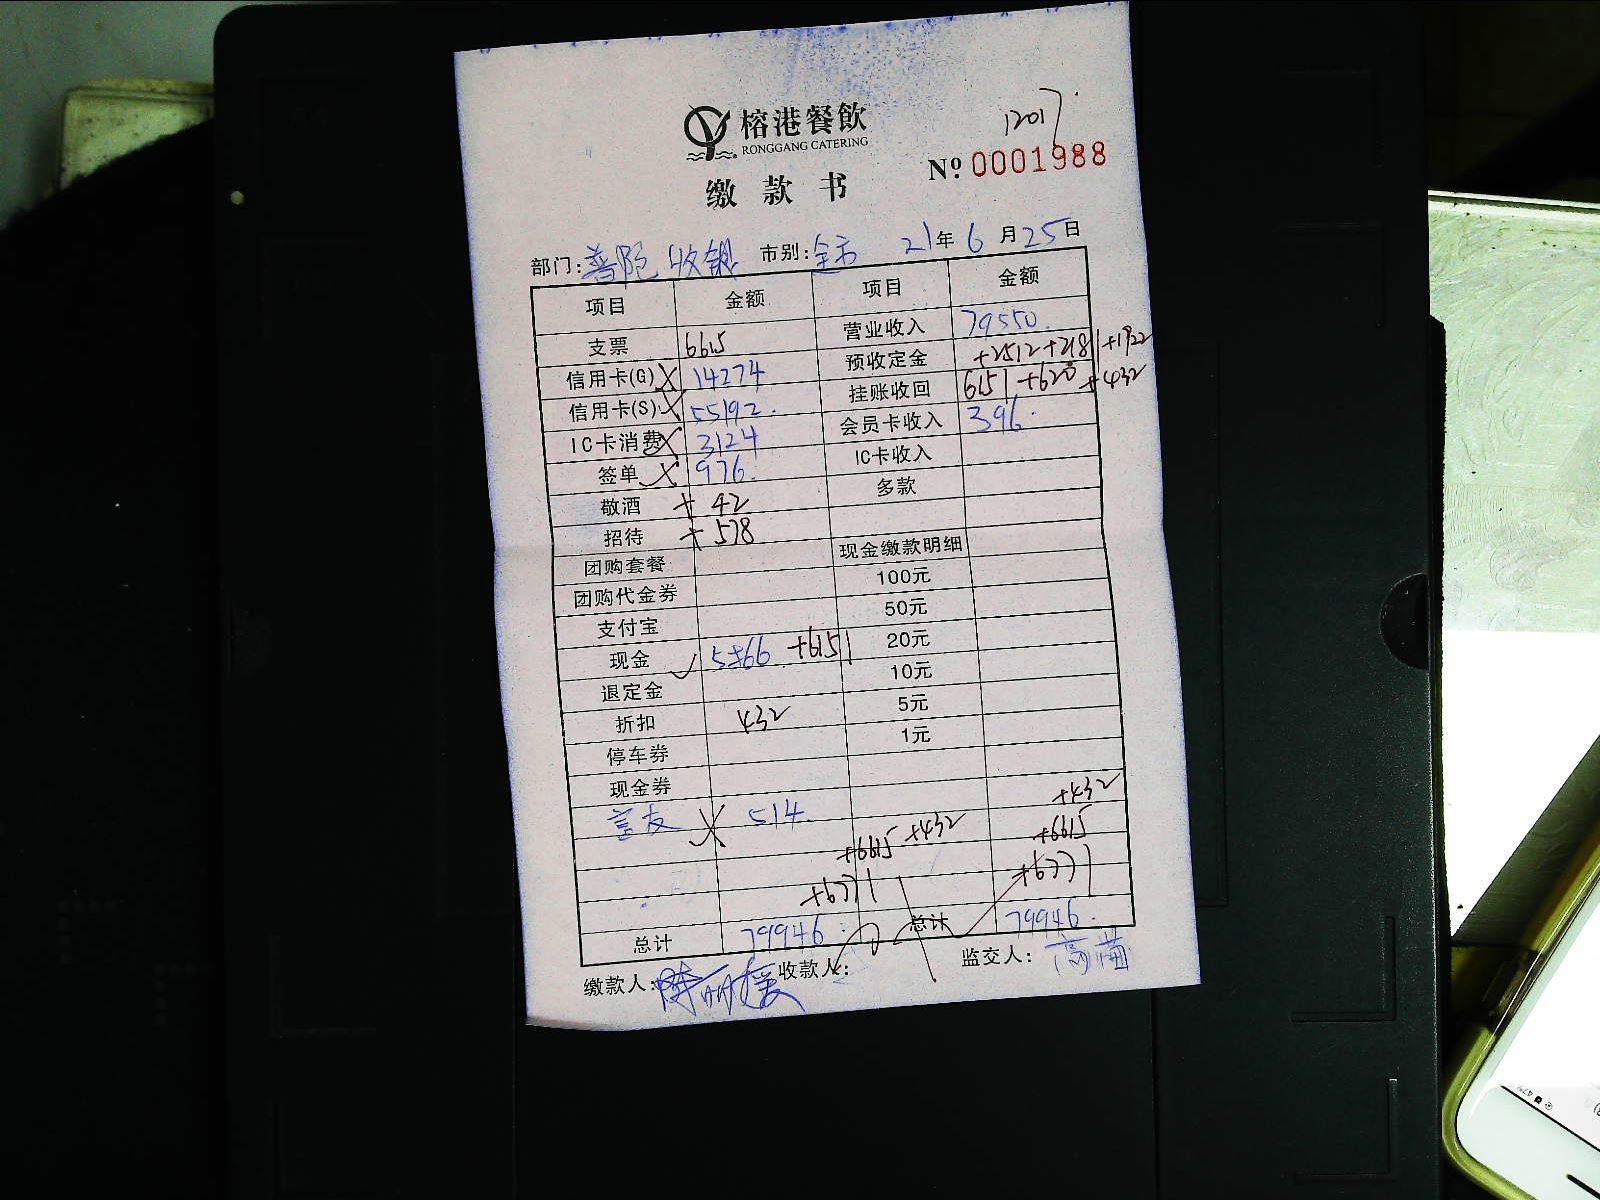 榕港餐飲
RONGGANG CATERING
Nº 0001988
缴款书
部门: 普陀 收银 市别: 全市 21年 6月 25日
项目 金额 项目 金额
支票 6615 营业收入 79550.
信用卡(G) 14274 预收定金 +2512+2181+1922
信用卡(S) 55192. 挂账收回 6151 +620 +432
IC卡消费 3124 会员卡收入 396.
签单 976. IC卡收入
敬酒 + 42 多款
招待 + 578
团购套餐 现金缴款明细
团购代金券 100元
支付宝 50元
现金 +6151 20元
退定金 10元
折扣 432 5元
停车券 1元
现金券
+432
514.
+6615 +432 +6615
+6771 +6771
总计 79946. 总计 79946.
缴款人: 收款人: 监交人: